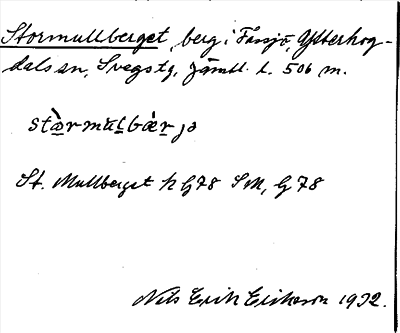 Stormullberget, berg i Fassjö, Ytterhog-
dals sn, Svegs tg, Jämtl. l. 506 m.
stæ̀rmul̲bær̲jə
St. Mullberget h G78 SM, G 78
Nils Erik Erikson 1932.